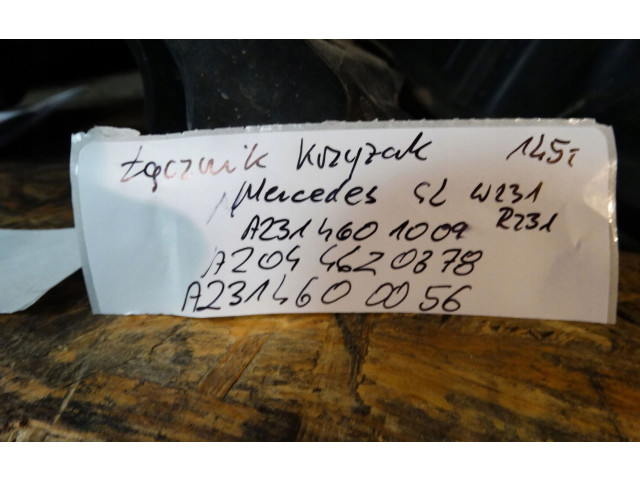 Łącznik Krzyżak 145,-
Mercedes SL W231
R231
A231 460 1009
A204 462 0378
A231460 0056